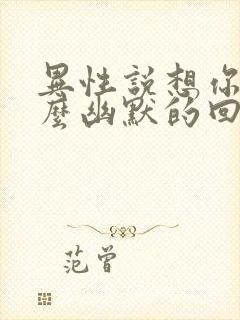 異性説想你
麼幽默的回
范曾